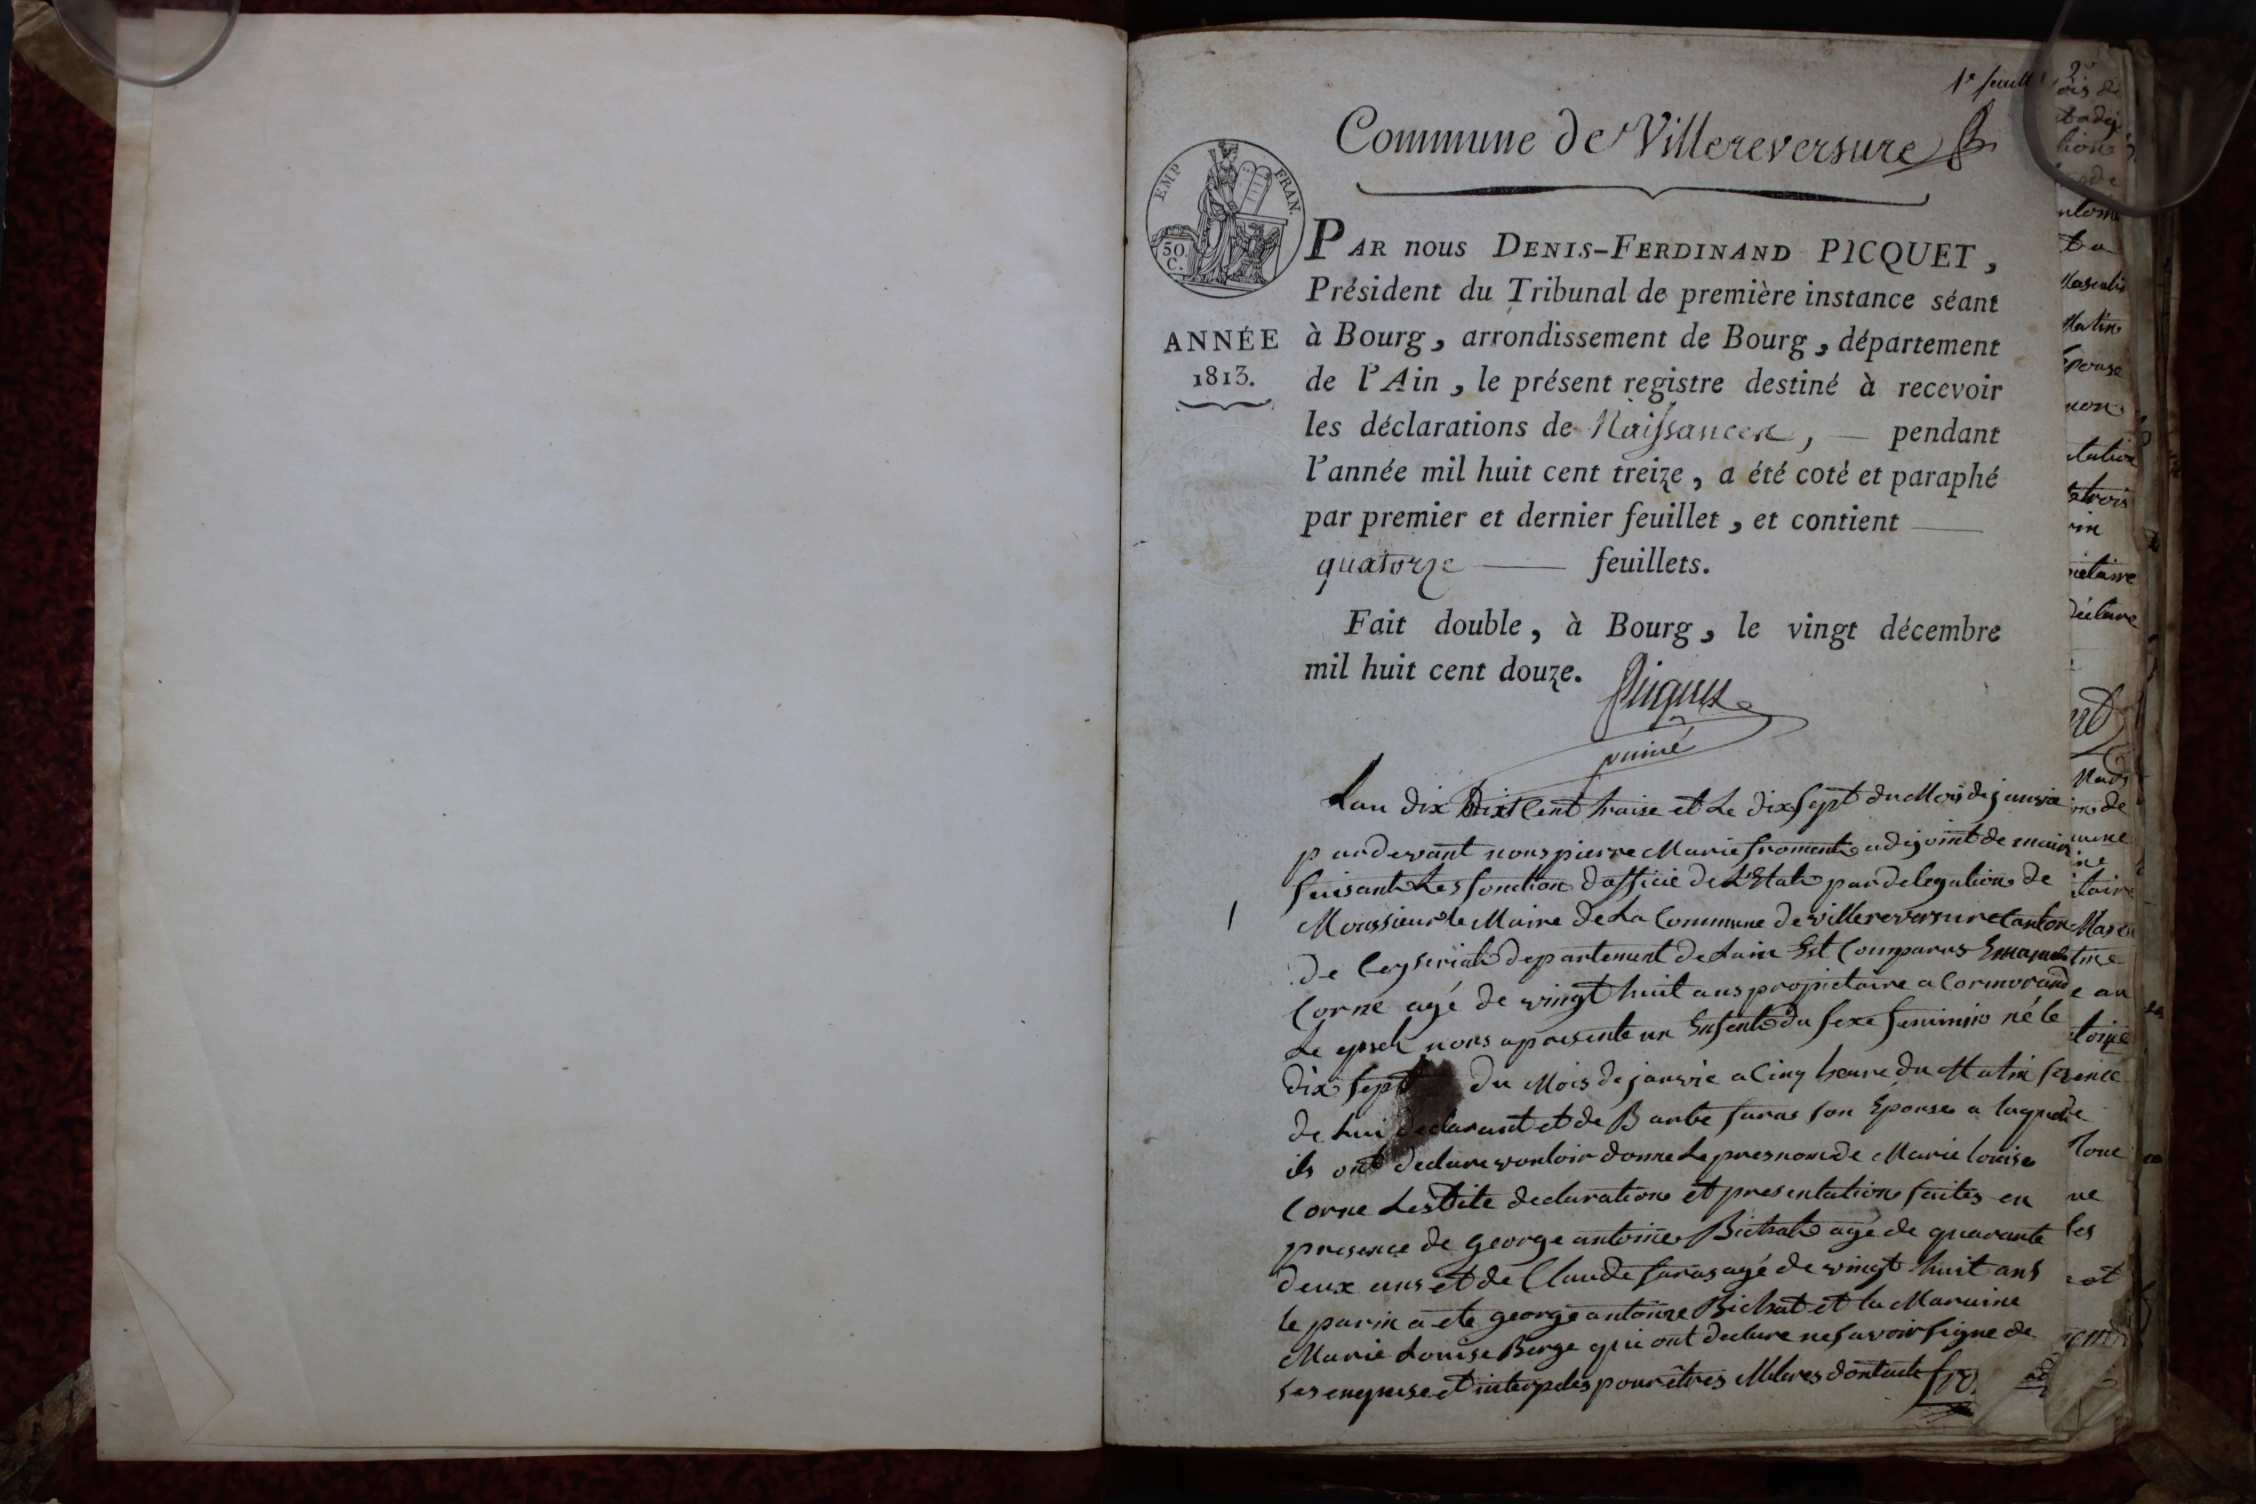 1e feuillet
Commune de Villereversure
EMP. FRAN.
50.
C.
ANNÉE
1813.
PAR nous DENIS-FERDINAND PICQUET,
Président du Tribunal de première instance séant
à Bourg, arrondissement de Bourg, département
de l'Ain, le présent registre destiné à recevoir
les déclarations de Naissances, — pendant
l'année mil huit cent treize, a été coté et paraphé
par premier et dernier feuillet, et contient —
quatorze — feuillets.
Fait double, à Bourg, le vingt décembre
mil huit cent douze.
Picquet
1
Lan dix huit Cent traise et Le dix sept du Mois de janvie
pardevant nous pierre Marie froment adjoint de maire
faisant Les fonction dofficie de L'Etat par delegation de
Monssieur le Maire de La Commune de villereversure Canton
de Ceyseriat departement de Lain Est Comparus
Corne agé de vingt huit ans propietaire a Cormorand
Le quel nous a presente un Enfent du sexe feminin né le
dix sept du Mois de janvie a Cinq heure du Matin
de Lui declarant et de Barbe saras son Epouse a laquele
ils ont declare vouloir donne Le presnom de Marie louise
Corne Lesdite declaration et presentation faites en
presence de george antoine Bichat agé de quarante
deux ans et de Claude saras agé de vingt huit ans
le parin a ete george antoine Bichat et la Maraine
Marie Louise Berge qui ont declare ne savoir signe de